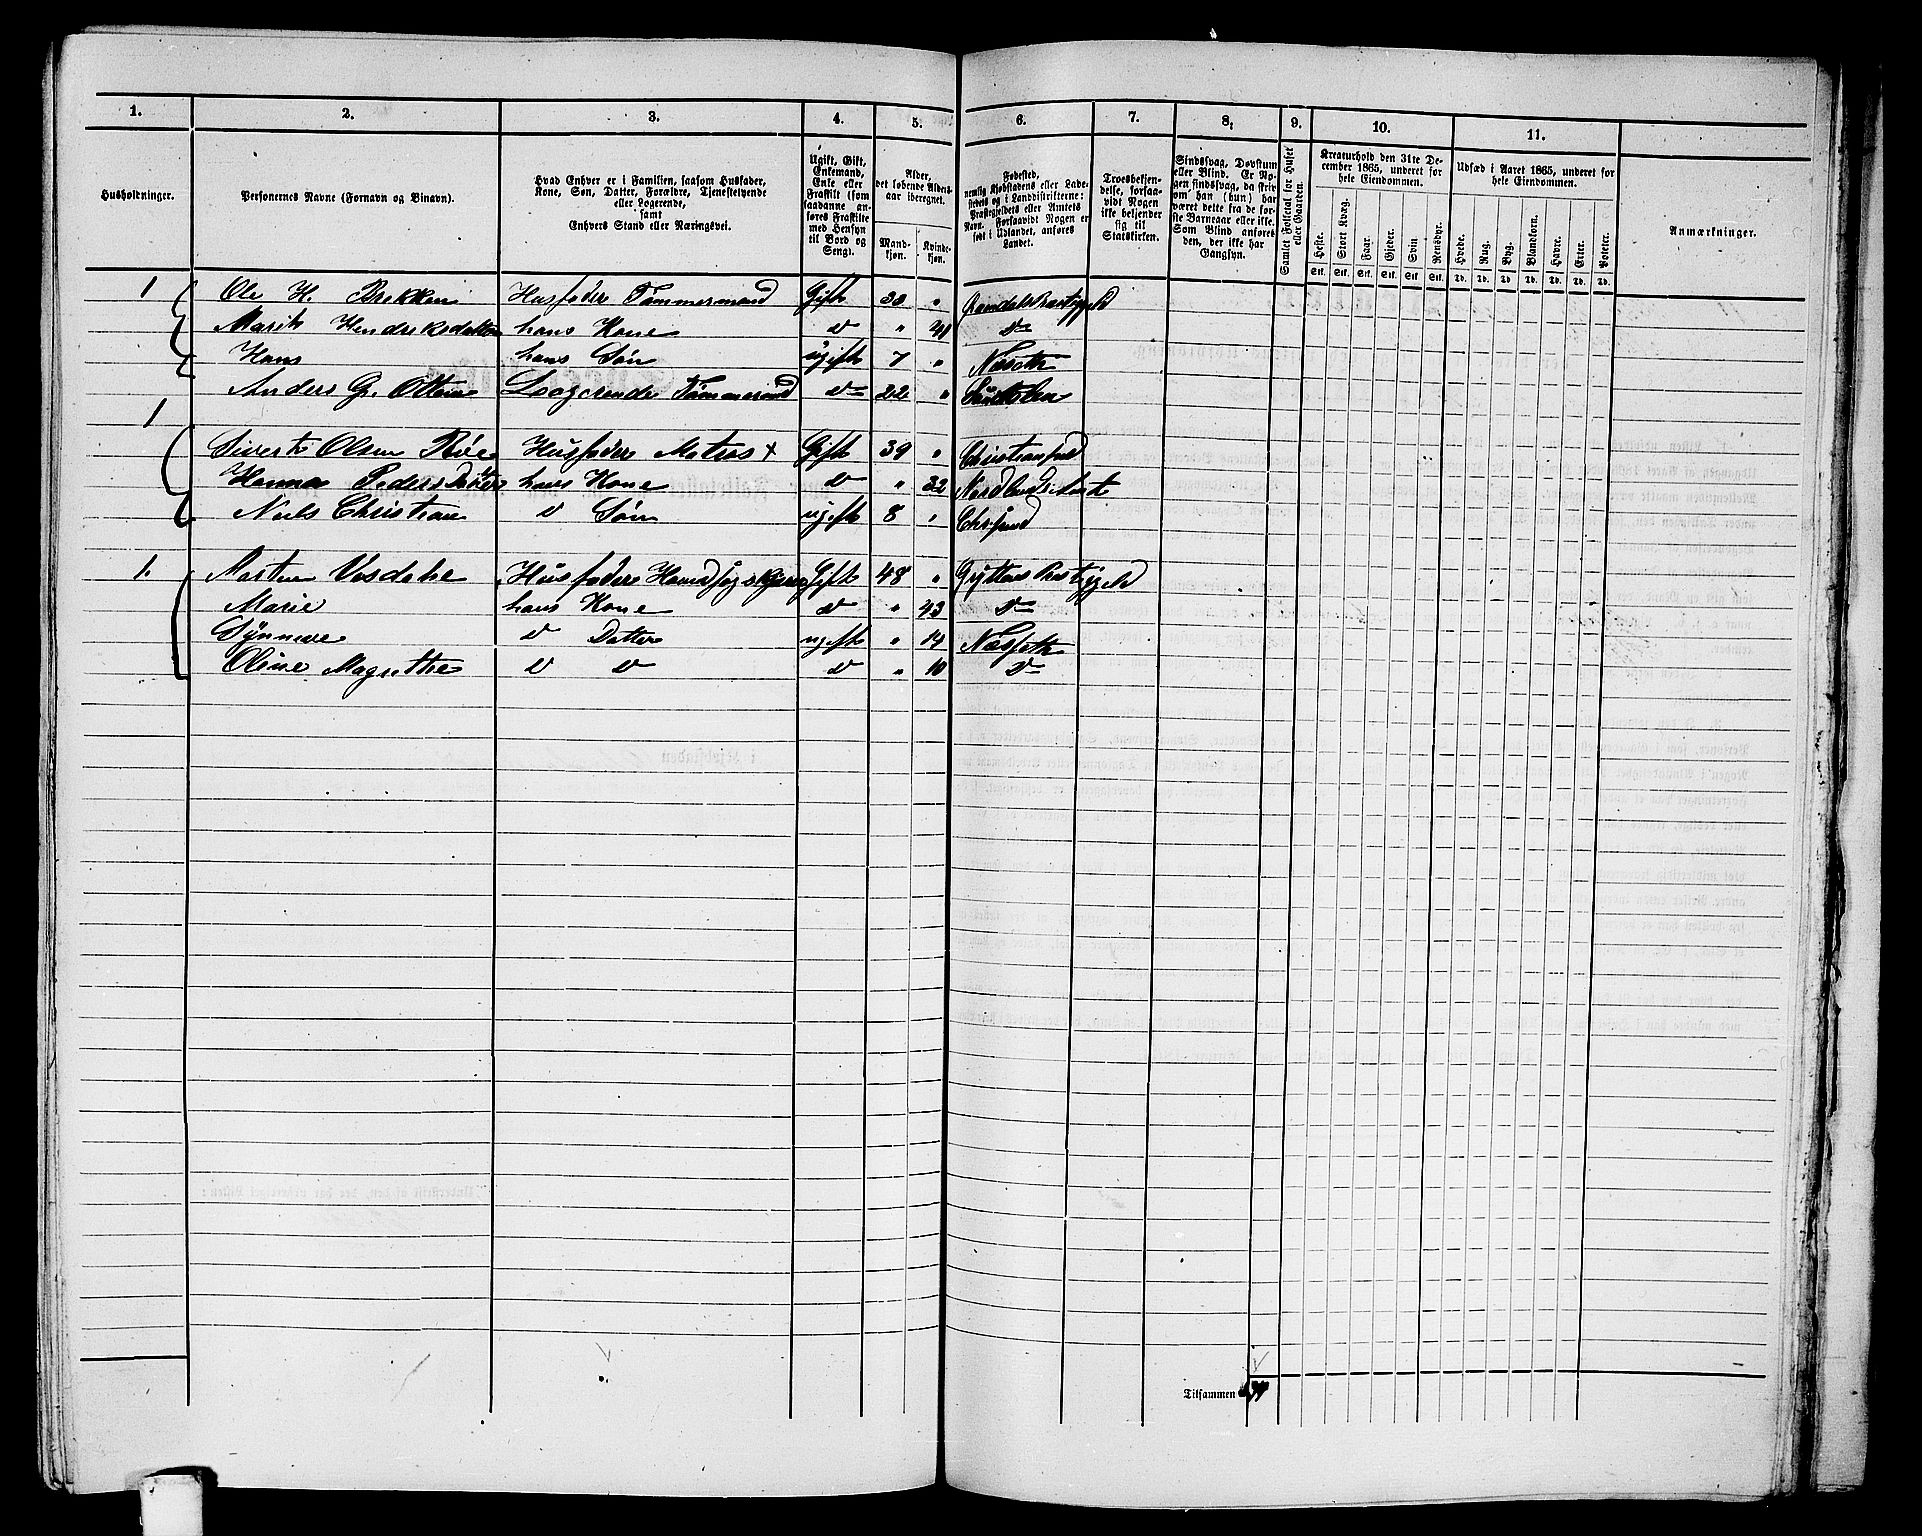 1. 2. 3. 4. 5. 6. 7. 8. 9. 10. 11.
Husholdninger.
Personernes Navne (Fornavn og Binavn).
Hvad Enhver er i Familien, saasom Husfader,
Kone, Søn, Datter, Forældre, Tjenestetyende
eller Logerende,
samt
Enhvers Stand eller Næringsvei.
Ugift, Gift,
Enkemand,
Enke eller
Fraskilt (som
saadanne an-
føres Fraskilte
med Hensyn
til Bord og
Seng).
Alder,
det løbende Alders-
aar iberegnet.
Mand-
kjøn.
Kvinde-
kjøn.
Fødested,
nemlig Kjøbstadens eller Lade-
stedets og i Landdistrikterne:
Præstegjeldets eller Amtets
Navn. Forsaavidt Nogen er
født i Udlandet, anføres
Landet.
Troesbekjen-
delse, forsaa-
vidt Nogen
ikke bekjender
sig til
Statskirken.
Sindssvag, Døvstum
eller Blind. Er No-
gen sindssvag, da skriv
om han (hun) har
været dette fra de før-
ste Barneaar eller ikke.
Som Blind anføres
den, der ikke har
Gangsyn.
Samlet Folketal for Huset
eller Gaarden.
Kreaturhold den 31te De-
cember 1865, underet for
hele Eiendommen.
Heste. Stort Kvæg. Faar. Gjeder. Svin Rensdyr.
Stk. Stk. Stk. Stk. Stk. Stk.
Udsæd i Aaret 1865, underet for
hele Eiendommen.
Hvede. Rug. Byg. Blandkorn. Havre. Erter. Poteter.
Td. Td. Td. Td. Td. Td. Td.
Anmærkninger.
1 Ole H. Brekken Husfader Tømmermand Gift 30 "
Marit Hendriksdatter hans Kone d " 41 d
Hans hans Søn ugift 7 " Næseth
Anders Gr. Ottem Logerende Tømmermand d 22 "
1
Sivert Olsen Røe Husfader Matros + Gift 39 " Christiansund
Hanna Pedersdatter hans Kone d " 32 Nordlands Amt
Niels Christian d Søn ugift 8 " Chrsund
1. Morten Vosdahl Husfader Gift 48 " Gryttens Præstegjeld
Marie hans Kone d " 43 d
Synneve d Datter ugift " 14 Næsseth
Oline Magrethe d d d " 10 d
Tilsammen